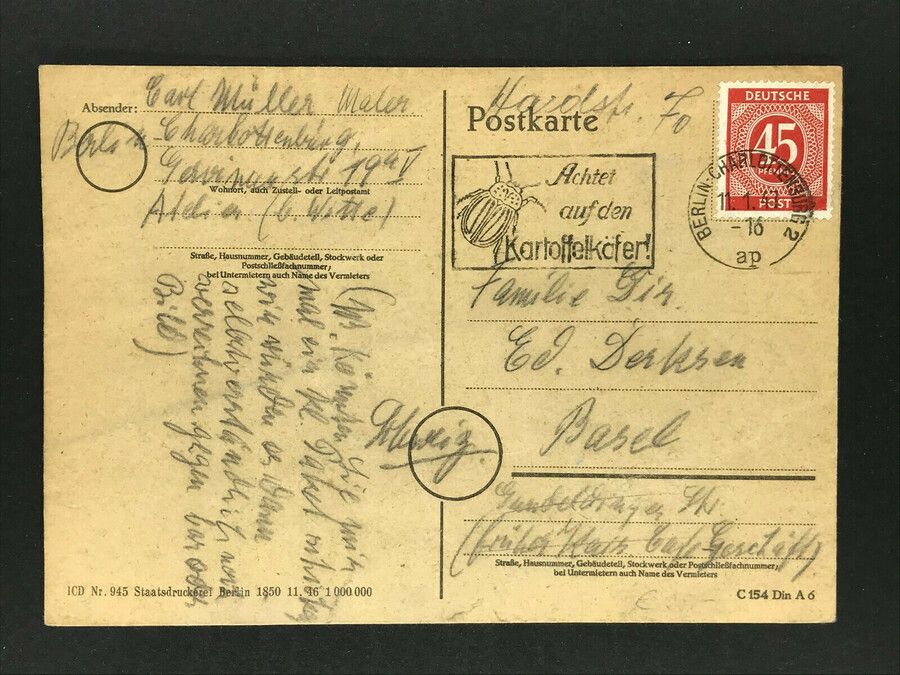 Absender: Carl Müller Maler
Berlin Charlottenburg,
19a IV
Wohnort, auch Zustell- oder Leitpostamt
Atelier (b. Witte)
Straße, Hausnummer, Gebäudeteil, Stockwerk oder
Postschließfachnummer;
bei Untermietern auch Name des Vermieters
(Können Sie mir
mal ein
wir würden es dann
selbstverständlich
verrechnen gegen bar oder
Bild)
ICD Nr. 945 Staatsdruckerei Berlin 1850 11. 46 1 000 000
Hardstr. 70
Postkarte
Achtet
auf den
Kartoffelkäfer!
DEUTSCHE
45
PFENNIG
POST
BERLIN-CHARLOTTENBURG 2
11.1.
-16
ap
Familie Dir.
Ed. Derksen
Basel
Schweiz
Gundeldinger Str.
(früher Geschäft)
Straße, Hausnummer, Gebäudeteil, Stockwerk oder Postschließfachnummer;
bei Untermietern auch Name des Vermieters
C 154 Din A 6